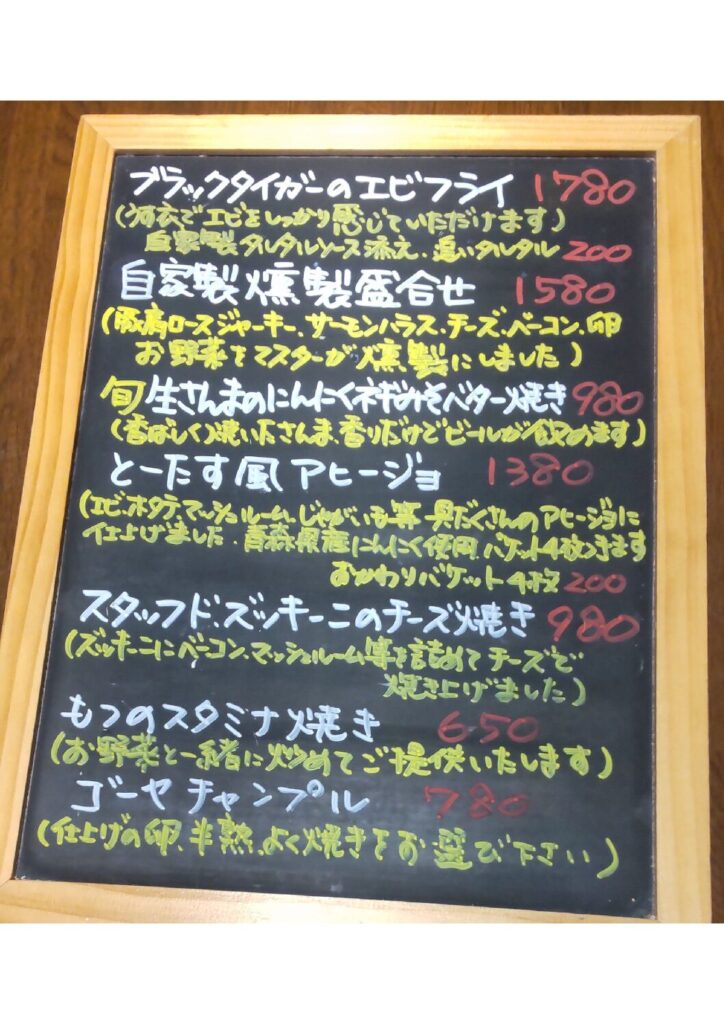 ブラックタイガーのエビフライ 1780
(うす衣でエビをしっかり感じていただけます)
自家製タルタルソース添え、追いタルタル 200
自家製燻製盛合せ 1580
(豚肩ロースジャーキー、サーモンハラス、チーズ、ベーコン、卵
お野菜をマスターが燻製にしました)
旬 生さんまのにんにくネギみそバター焼き 980
(香ばしく焼いたさんま、香りだけでビールが飲めます)
とーたす風アヒージョ 1380
(エビ・ホタテ、マッシュルーム、じゃがいも等 具だくさんのアヒージョに
仕上げました。青森県産にんにく使用、バケット4枚つきます
おかわりバケット4枚 200
スタッフド・ズッキーニのチーズ焼き 980
(ズッキーニにベーコン、マッシュルーム等を詰めてチーズで
焼き上げました)
もつのスタミナ焼き 650
(お野菜と一緒に炒めてご提供いたします)
ゴーヤチャンプル 780
(仕上げの卵、半熟、よく焼きをお選び下さい)